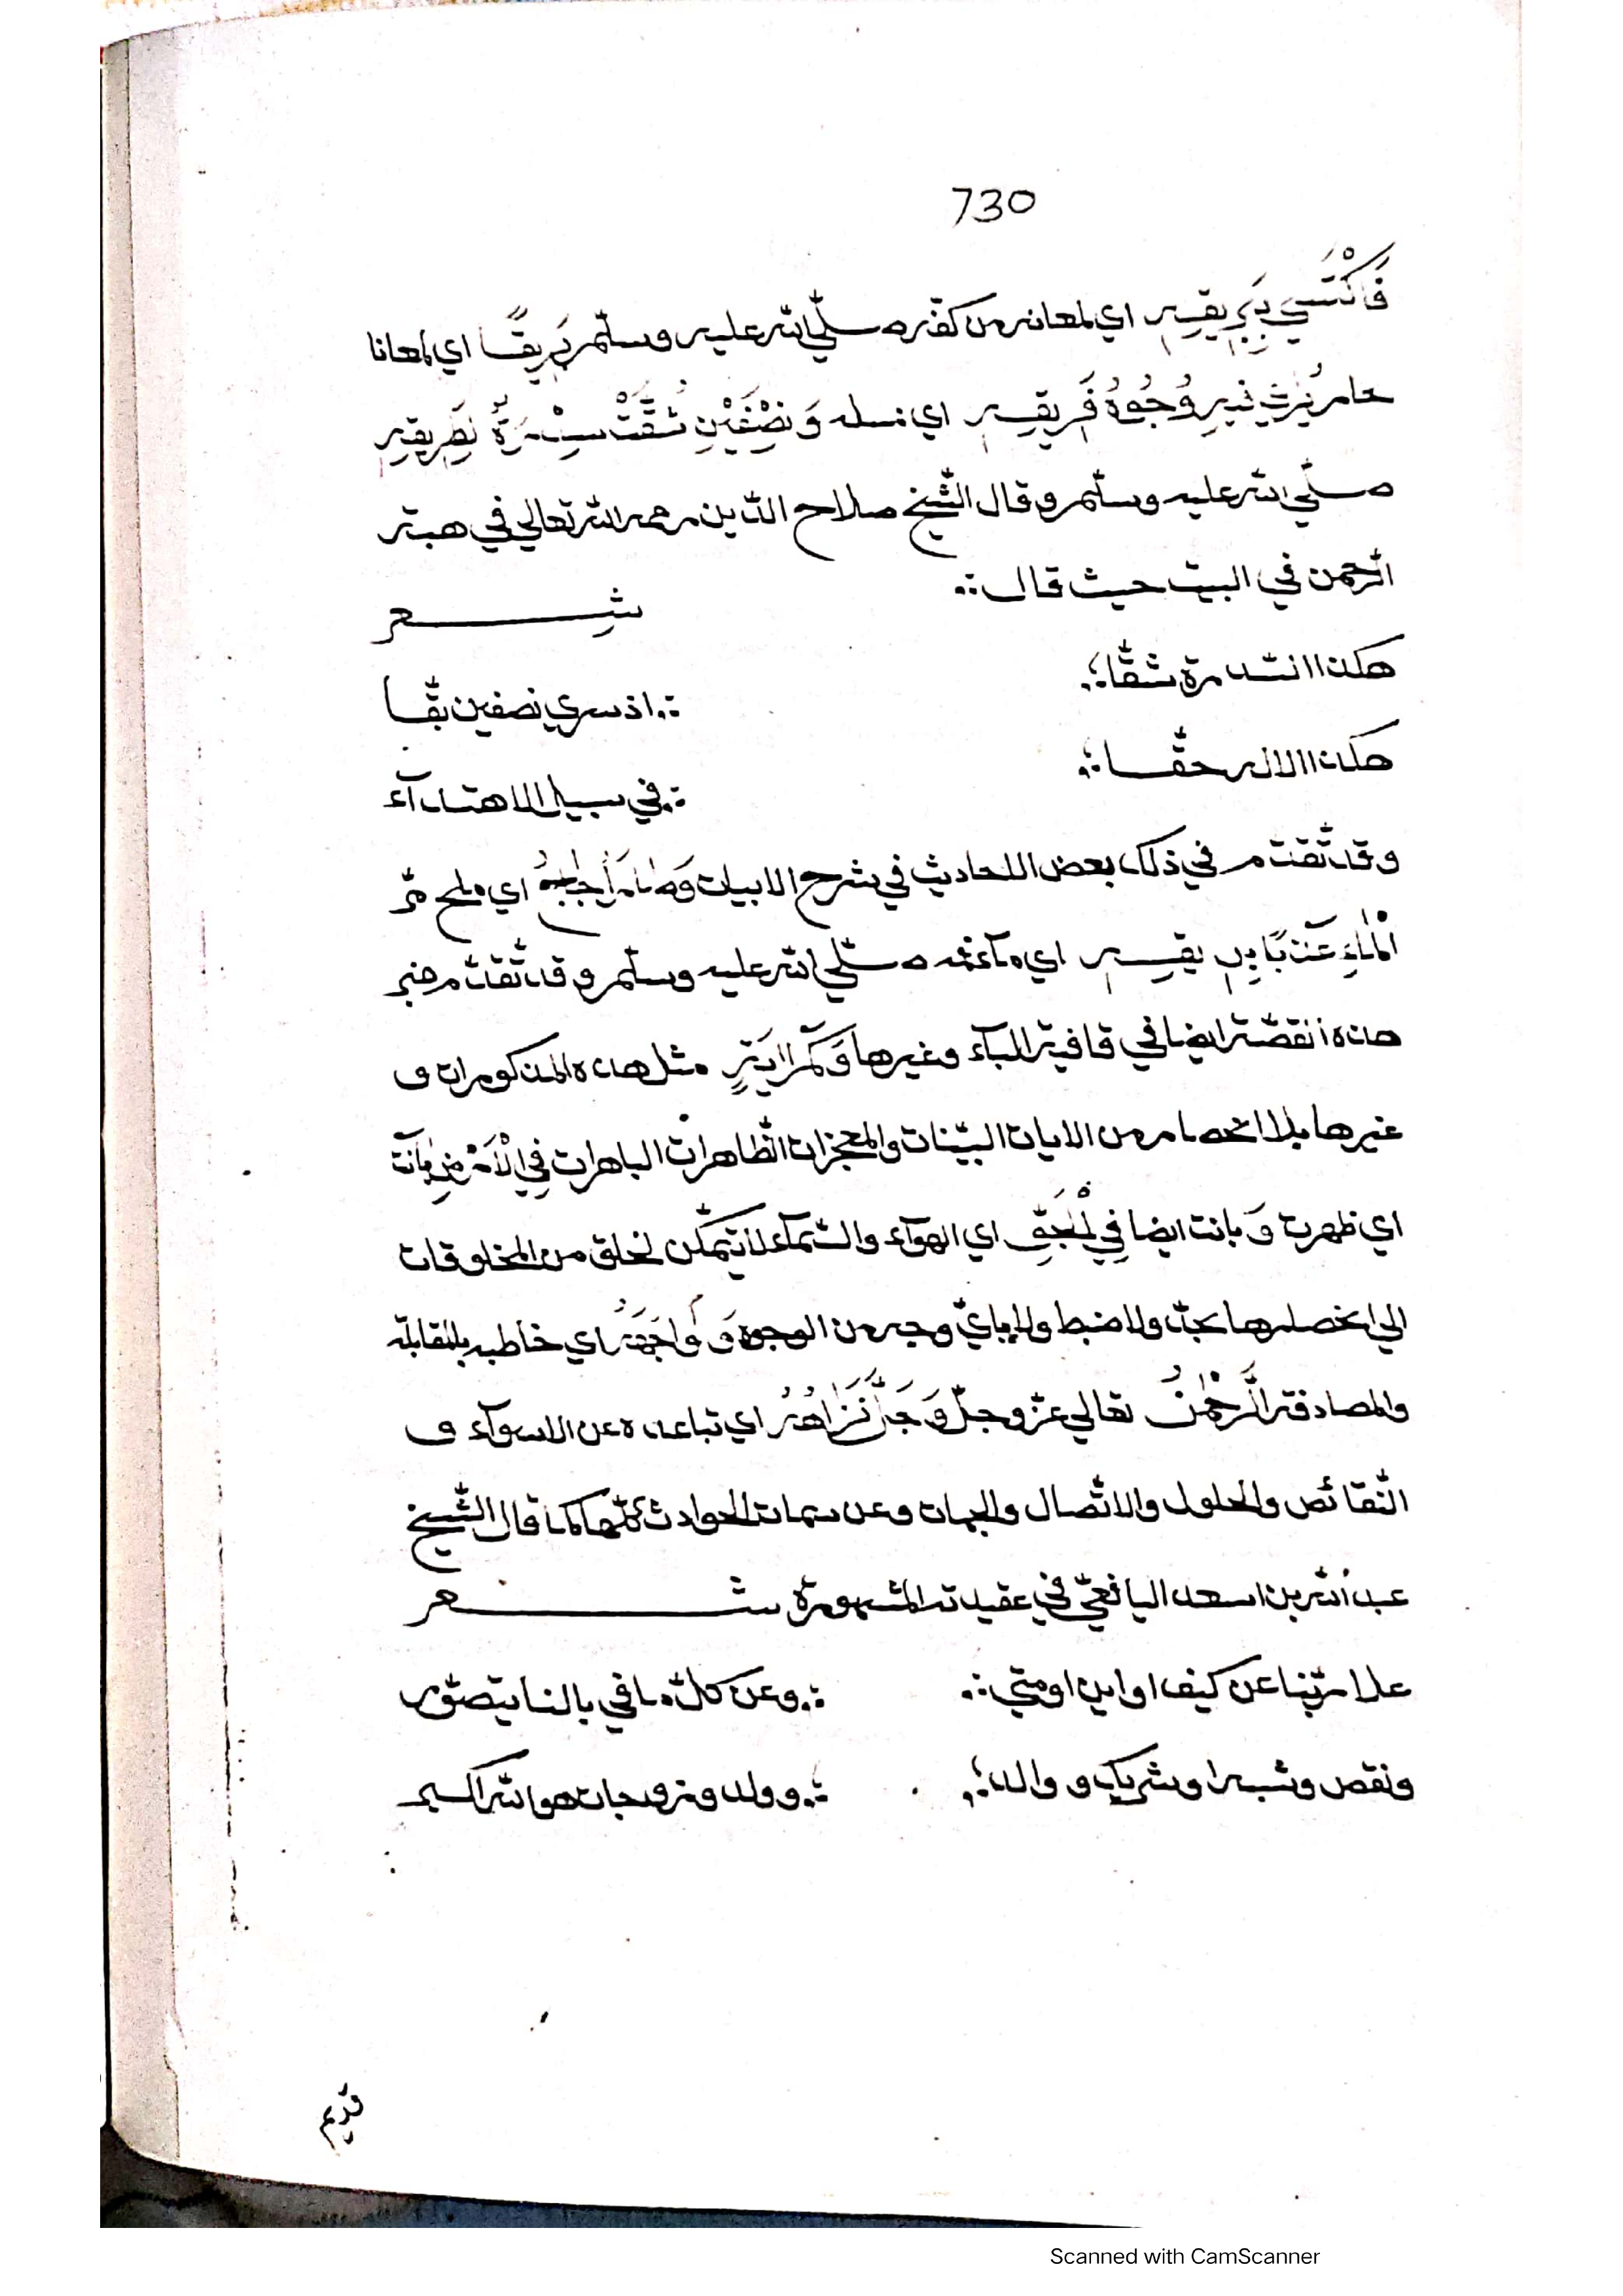 730
فَاكْتَسَي بِبَرِيقِهِ اي لمعانه من كفّه صلّي الله عليه وسلّم بَرِيقًا اي لمعانا
وُجُوهُ فَرِيقِهِ اي نسله وَنِصْفَيْنِ شُقَّتْ سِدْرَةٌ لِطَرِيقِهِ
صلّي الله عليه وسلّم وقال الشّيخ صلاح الدّين رحمه الله تعالي في هبة
الرّحمن في البيت حيث قال
شعر
هكذا السّدرة شقّا
اذ سري نصفين بقّا
هكذا الاله حقّا
في سبيل الاهتدآء
وقد تّقدّم في ذلك بعض اللحاديث في شرح الابيات وَصَارَ أُجَاجُ اي ملح مّر
الْمَاءِ عَذْبًا بِرِيقِهِ اي مآءفمه صلّي الله عليه وسلّم وقد تّقدّم خبر
هذه القصّة ايضا في قافية البآء وغيرها وَكَمْ اٰيَةٍ مثل هذه المذكورات و
غيرها بلا انحصار من الايات البيّنات والمعجزات الظّاهرات الباهرات فِي الْأَرْضِ بَانَتْ
اي ظهرت وَ بانت ايضا فِي الْجَوِّ اي الهوآء والسّمآء لا يتمكّن لخلق من المخلوقات
الي حصرها بحدّ ولا ضبط ولا باي وجه من الوجوه وَ وَاجَهَهُ اي خاطبه بالمقابلة
والمصادفة الرَّحْمٰنُ تعالي عزّ وجلّ وَجَلَّ نَزَاهُهُ اي تباعده عن الاسوآء و
النّقائص والحلول والاتّصال والجهات وعن سمات الحوادث كلّها كما قال الشّيخ
عبد الله بن اسعد اليافعيّ في عقيدته المشهورة شعر
علا ربّنا عن كيف او اين او متي
وعن كلّ ما في بالنا يتصوّر
ونقص وشبه او شريك و والد
وولد وزوجات هو الله اكبر
قديم
Scanned with CamScanner